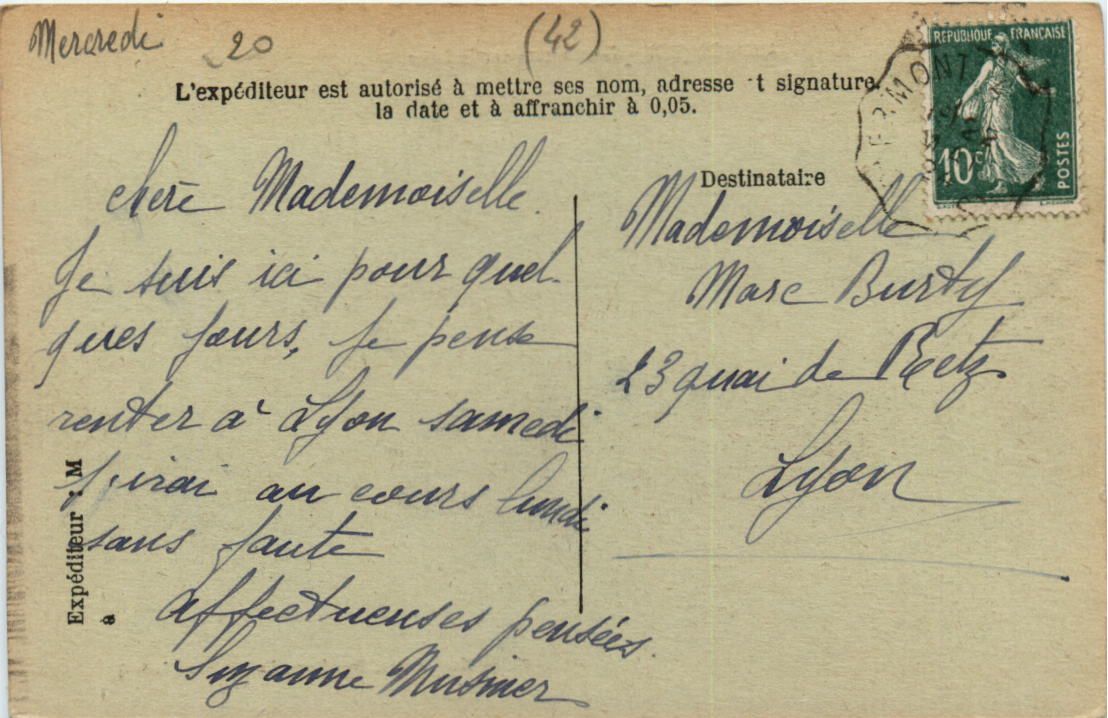 Mercredi 20 (42)
L'expéditeur est autorisé à mettre ses nom, adresse t signature
la date et à affranchir à 0,05.
RÉPUBLIQUE FRANÇAISE
10c
POSTES
chère Mademoiselle.
Je suis ici pour quel-
ques jours, je pense
rentrer à Lyon samedi
j'irai au cours lundi
sans faute
affectueuses pensées.
Suzanne
Destinataire
Mademoiselle
Marc Burty
23 quai de Retz
Lyon
Expéditeur : M
à